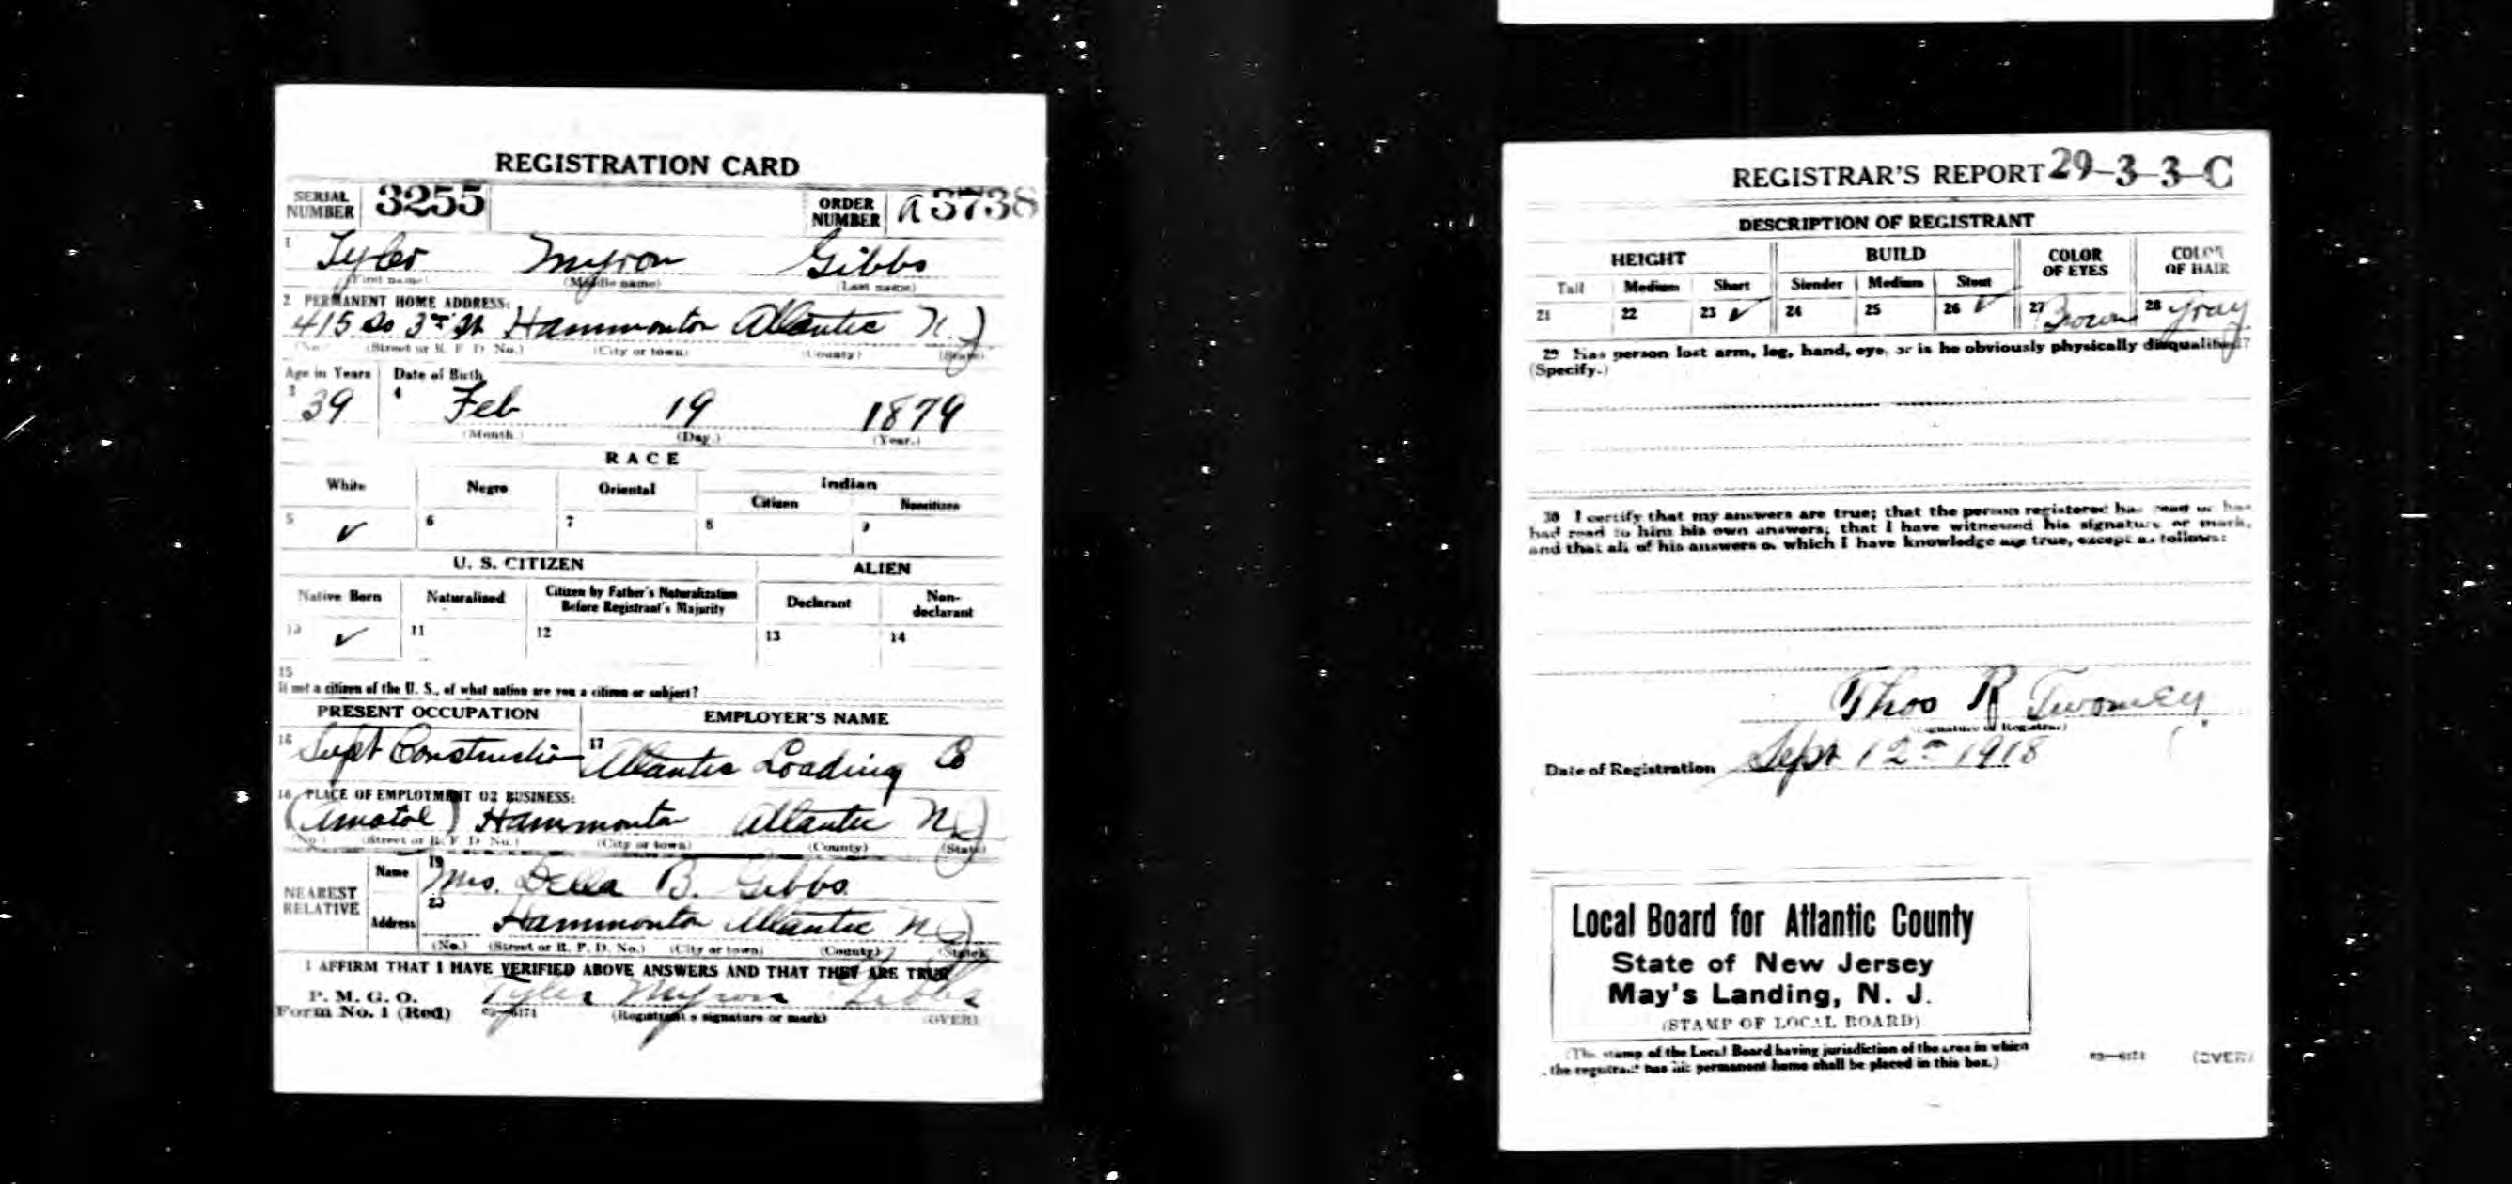 REGISTRATION CARD
SERIAL NUMBER 3255 ORDER NUMBER A3738
1 Tyler Myron Gibbs
(First name) (Middle name) (Last name)
2 PERMANENT HOME ADDRESS:
415 So 3rd St Hammonton Atlantic NJ
(No.) (Street or R. F. D. No.) (City or town) (County) (State)
Age in Years Date of Birth
3 39 4 Feb 19 1879
(Month.) (Day.) (Year.)
RACE
White Negro Oriental Indian
Citizen Noncitizen
5 ✓ 6 7 8 9
U. S. CITIZEN ALIEN
Native Born Naturalized Citizen by Father's Naturalization Before Registrant's Majority Declarant Non-declarant
10 ✓ 11 12 13 14
15
If not a citizen of the U. S., of what nation are you a citizen or subject?
PRESENT OCCUPATION EMPLOYER'S NAME
16 Supt Construction 17 Atlantic Loading Co
18 PLACE OF EMPLOYMENT OR BUSINESS:
(Amatol) Hammonton Atlantic NJ
(No.) (Street or R. F. D. No.) (City or town) (County) (State)
NEAREST RELATIVE
Name 19 Mrs. Della B. Gibbs
Address 20 Hammonton Atlantic NJ
(No.) (Street or R. F. D. No.) (City or town) (County) (State)
I AFFIRM THAT I HAVE VERIFIED ABOVE ANSWERS AND THAT THEY ARE TRUE
P. M. G. O.
Form No. 1 (Red) Tyler Myron Gibbs
(Registrant's signature or mark) (OVER)
REGISTRAR'S REPORT 29-3-3-C
DESCRIPTION OF REGISTRANT
HEIGHT BUILD COLOR OF EYES COLOR OF HAIR
Tall Medium Short Slender Medium Stout
21 22 23 ✓ 24 25 26 ✓ 27 Brown 28 Gray
29 Has person lost arm, leg, hand, eye, or is he obviously physically disqualified?
(Specify.)
30 I certify that my answers are true; that the person registered has read or has
had read to him his own answers; that I have witnessed his signature or mark,
and that all of his answers of which I have knowledge are true, except as follows:
Thos R Twomey
(Signature of Registrar)
Date of Registration Sept 12th 1918
Local Board for Atlantic County
State of New Jersey
May's Landing, N. J.
(STAMP OF LOCAL BOARD)
(The stamp of the Local Board having jurisdiction of the area in which
the registrant has his permanent home shall be placed in this box.)
(OVER)